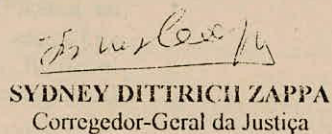 SYDNEY DITTRICH ZAPPA
Corregedor-Geral da Justiça